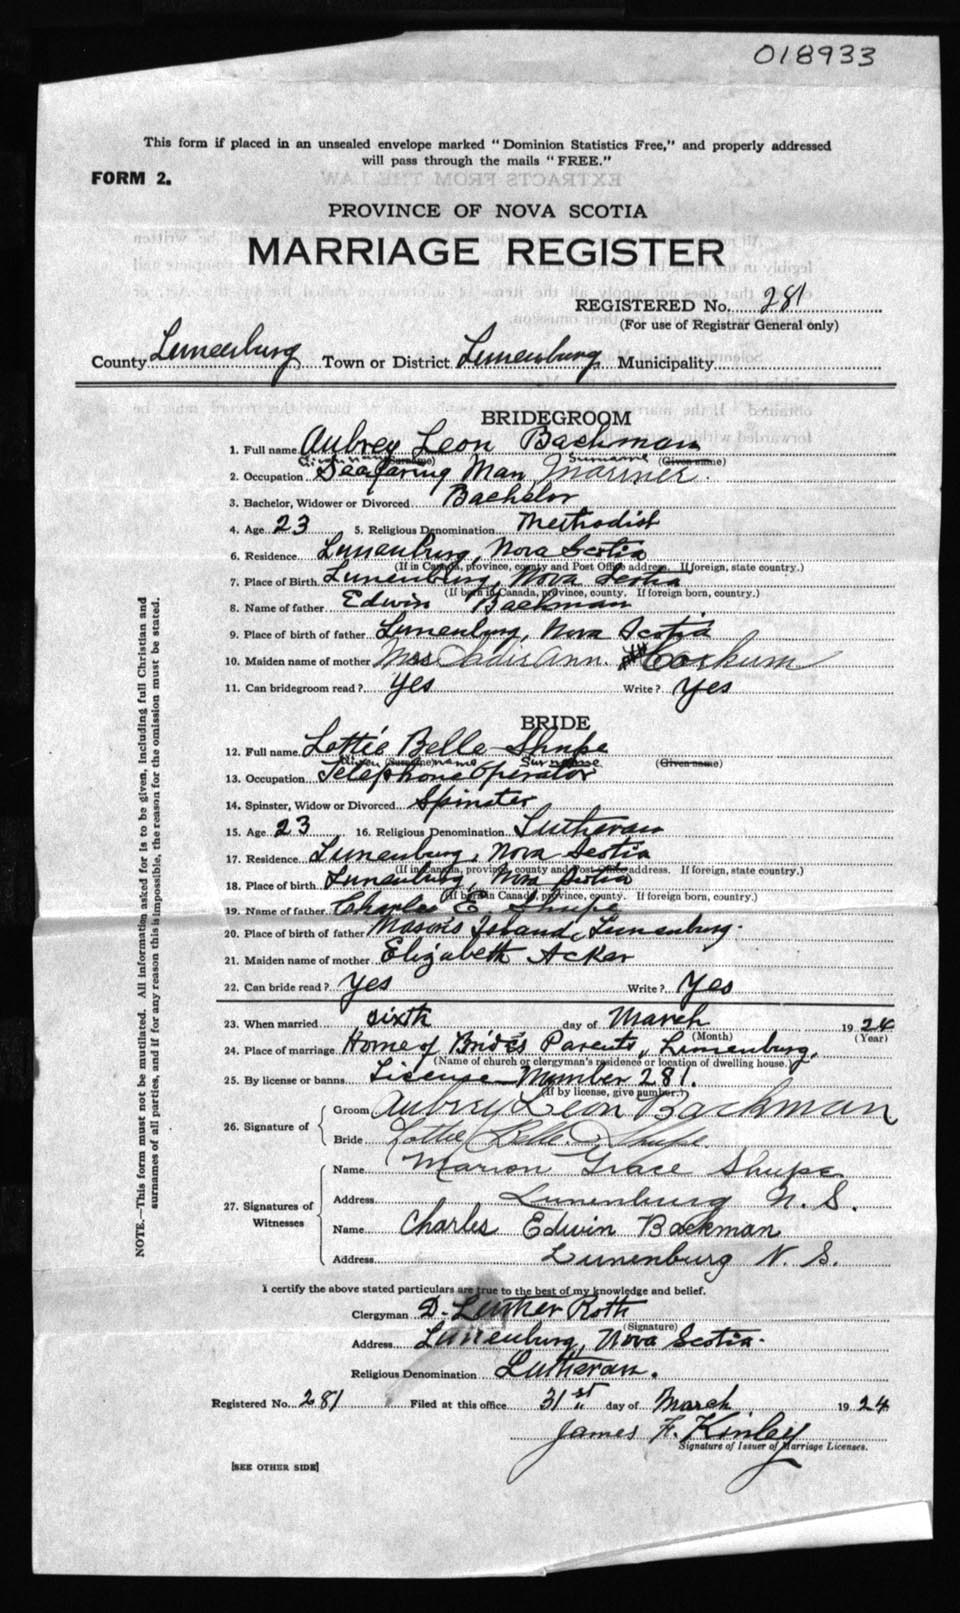 018933
This form if placed in an unsealed envelope marked "Dominion Statistics Free," and properly addressed
will pass through the mails "FREE."
FORM 2.
PROVINCE OF NOVA SCOTIA
MARRIAGE REGISTER
REGISTERED No. 281
(For use of Registrar General only)
County Lunenburg Town or District Lunenburg Municipality
BRIDEGROOM
1. Full name Aubrey Leon Backman
Given name (Surname) Surname (Given name)
2. Occupation Seafaring Man Mariner.
3. Bachelor, Widower or Divorced Bachelor
4. Age 23 5. Religious Denomination Methodist
6. Residence Lunenburg, Nova Scotia
(If in Canada, province, county and Post Office address. If foreign, state country.)
7. Place of Birth Lunenburg, Nova Scotia
(If born in Canada, province, county. If foreign born, country.)
8. Name of father Edwin Backman
9. Place of birth of father Lunenburg, Nova Scotia
10. Maiden name of mother Ann. Corkum
11. Can bridegroom read? yes Write? yes
BRIDE
12. Full name Lottie Belle Shupe
Given (Surname) name Surname (Given name)
13. Occupation Telephone Operator
14. Spinster, Widow or Divorced Spinster
15. Age 23 16. Religious Denomination Lutheran
17. Residence Lunenburg, Nova Scotia
(If in Canada, province, county and Post Office address. If foreign, state country.)
18. Place of birth Lunenburg, Nova Scotia
(If born in Canada, province, county. If foreign born, country.)
19. Name of father Charles E. Shupe
20. Place of birth of father Mason's Island, Lunenburg.
21. Maiden name of mother Elizabeth Acker
22. Can bride read? yes Write? Yes
23. When married sixth day of March 1924
(Month) (Year)
24. Place of marriage Home of Bride's Parents, Lunenburg,
(Name of church or clergyman's residence or location of dwelling house.)
25. By license or banns License Number 281.
(If by license, give number.)
26. Signature of Groom Aubrey Leon Backman
Bride Lottie Belle Shupe.
27. Signatures of Witnesses Name Marion Grace Shupe
Address Lunenburg N. S.
Name Charles Edwin Backman
Address Lunenburg N. S.
I certify the above stated particulars are true to the best of my knowledge and belief.
Clergyman D. Luther Roth
(Signature)
Address Lunenburg, Nova Scotia.
Religious Denomination Lutheran.
Registered No. 281 Filed at this office 31st day of March 1924
James F. Kinley
Signature of Issuer of Marriage Licenses.
[SEE OTHER SIDE]
NOTE.—This form must not be mutilated. All information asked for is to be given, including full Christian and
surnames of all parties, and if for any reason this is impossible, the reason for the omission must be stated.